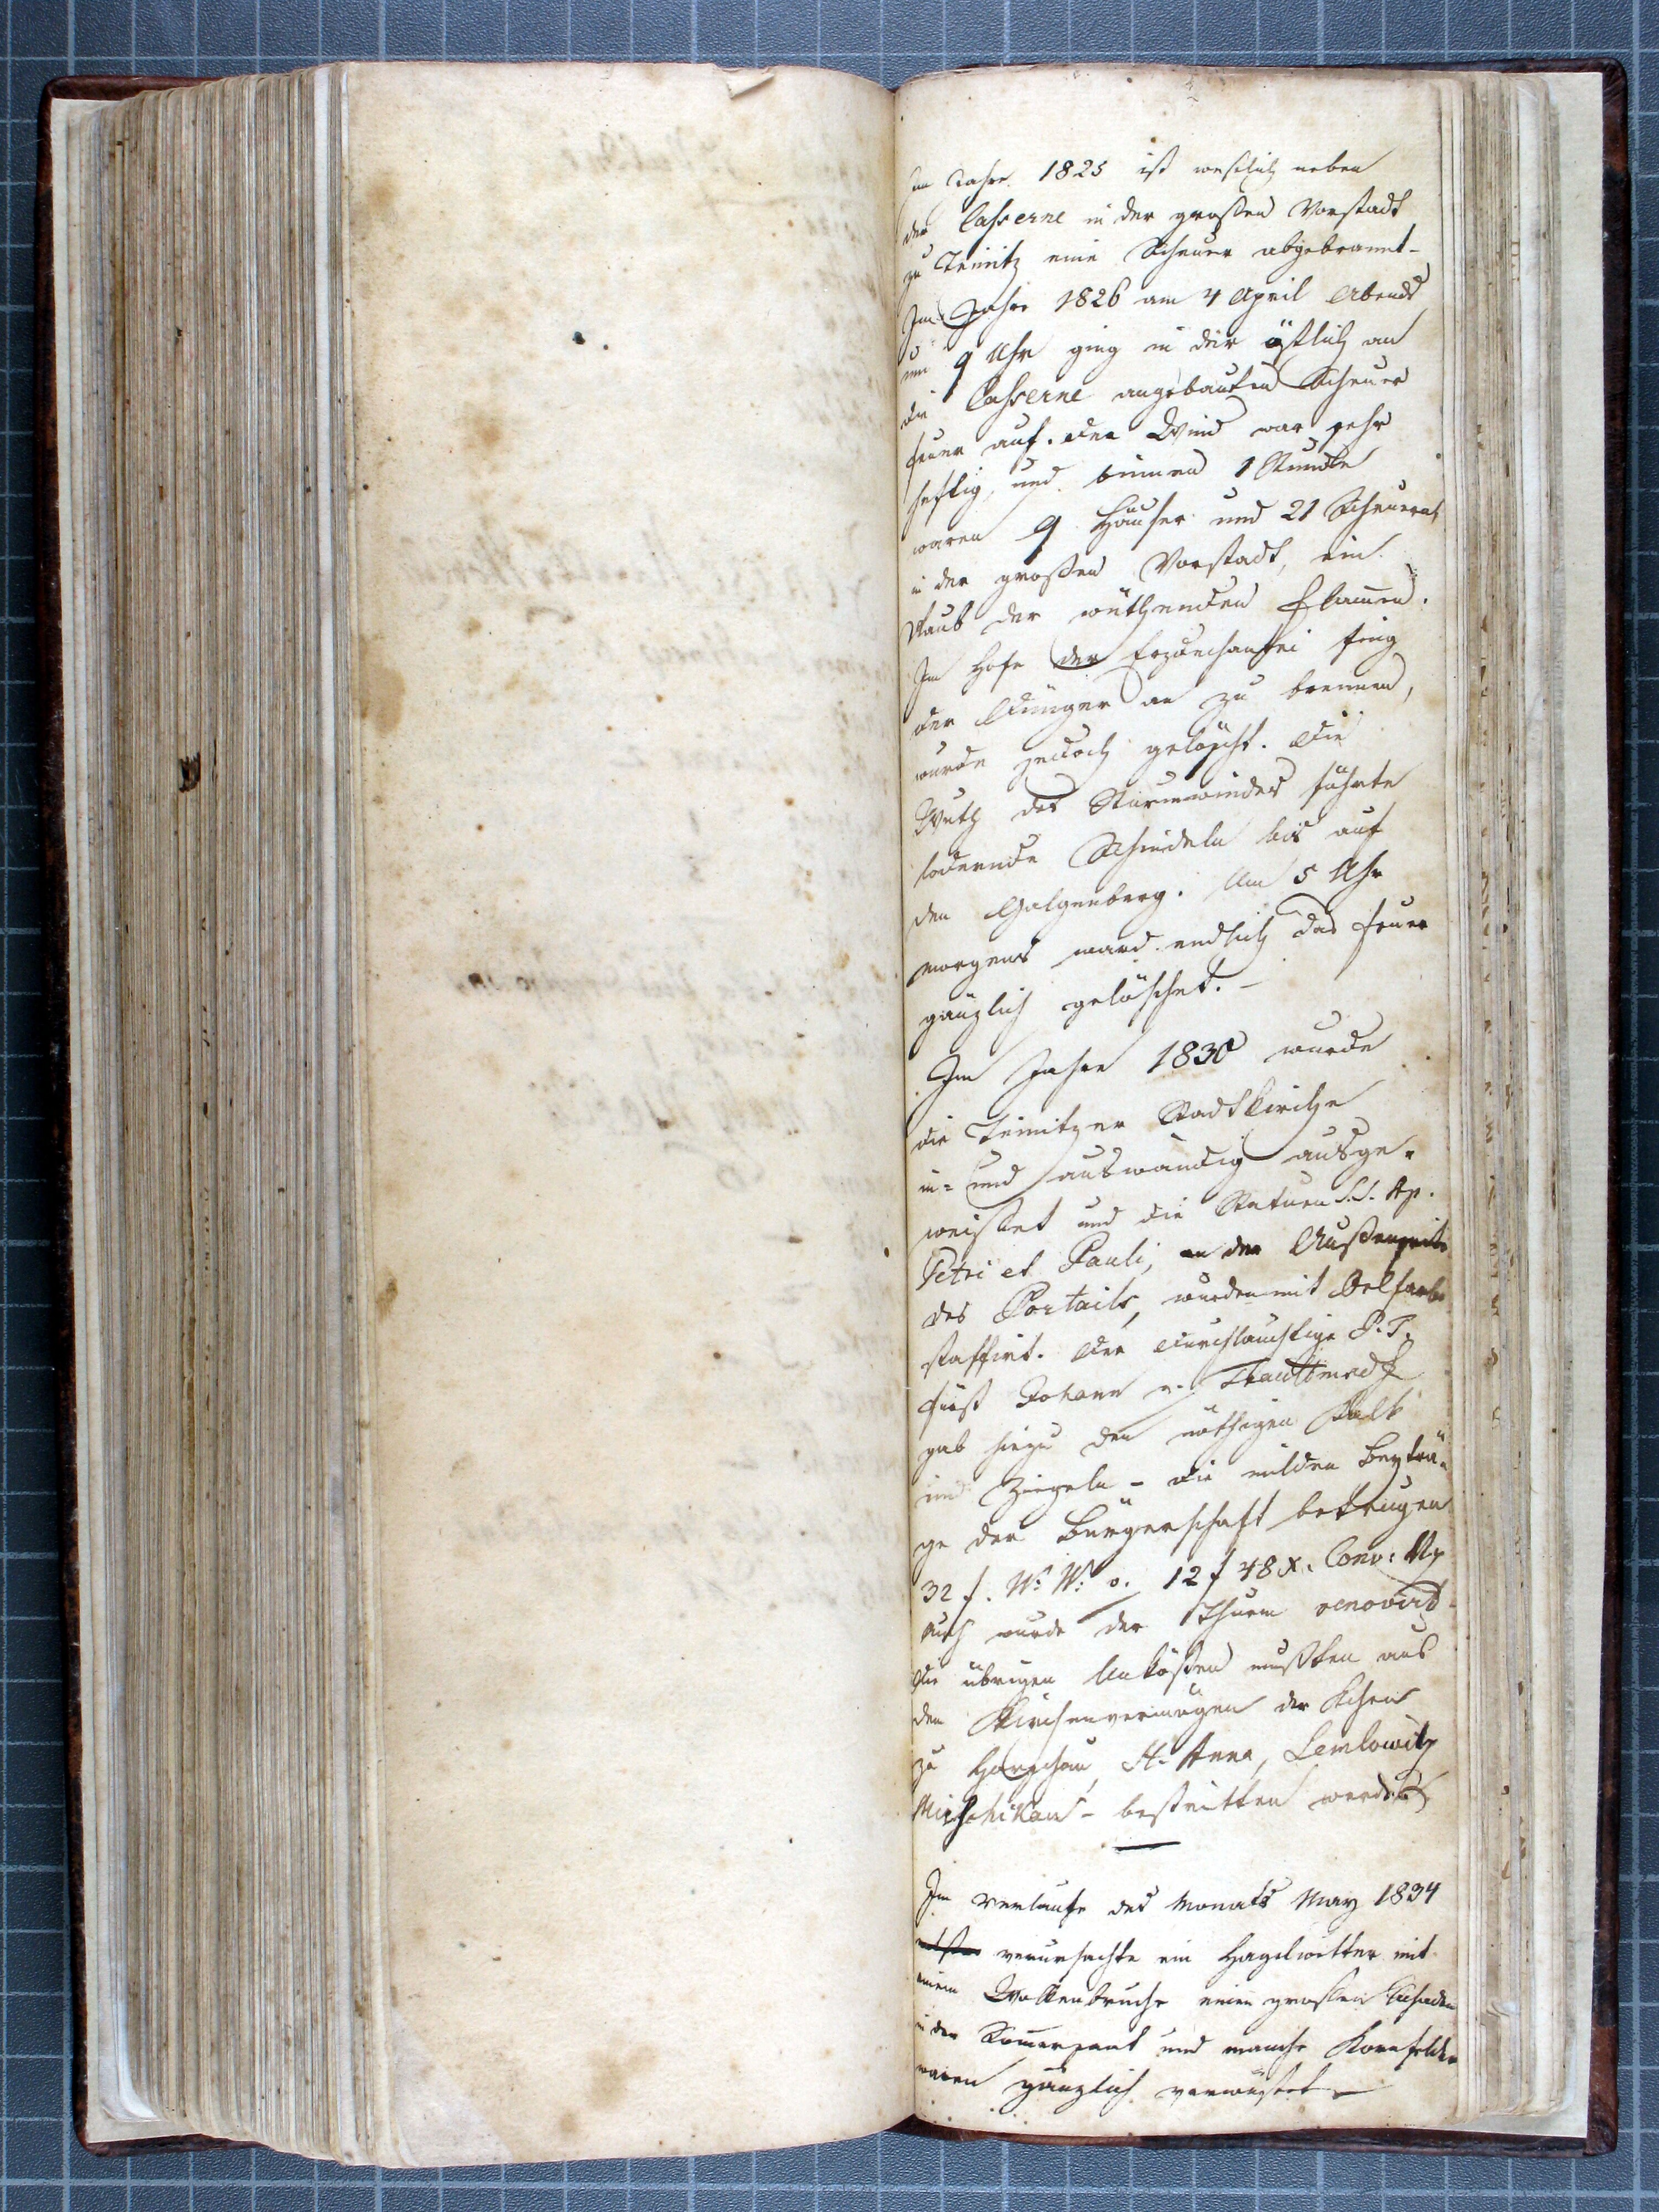 Im Jahre 1825 ist westlich neben
der Casserne in der großen Vorstadt
zu Teinitz eine Scheuer abgebrannt-
Im Jahre 1826 am 4 April Abends
um 9 Uhr ging in der östlich an
die Casserne angebauten Scheuer
Feuer auf. Der Wind war sehr
heftig, und binnen 1 Stunde
waren 9 Häuser und 21 Scheuern
in der großen Vorstadt, ein
Raub der wüthenden Flamen.
Im Hofe der Erzdechantei fing
der Dünger an zu brennen,
wurde jedoch gelöscht. Die
Wuth des Sturmwindes führte
lodernde Schindeln bis auf
den Galgenberg. Um 5 Uhr
morgens ward endlich das Feuer
gänzlich gelöschet. -
Im Jahre 1830 wurde
die Teinitzer Stadtkirche
in- und auswändig ausge-
weisset und die Statuen S.S. Ap.
Petri et Pauli, an der Außenseite
des Portails, wurden mit Oelfarbe
staffirt. Der Durchlauchtige P.T.
Fürst Johann v. Trauttmsd
gab hiezu den nöthigen Kalk
und Ziegeln - die milden Beyträ-
ge der Bürgerschaft betrugen
32 f. W: W: o. 12 f 48 x. Conv:
Auch wurde der Thurm renovirt-
Die übrigen Unkösten mußten aus
den Kirchenvermögen der Kchen
zu Horschau, St. Anna, Semlowitz
Mirschikau - bestritten werden
Im Verlaufe des Monats May 1834
verursachte ein Hagelwetter mit
einem Wolkenbruche einen großen Schaden
in der Sommersaat und manche Kornfelder
waren gänzlich verwüstet -